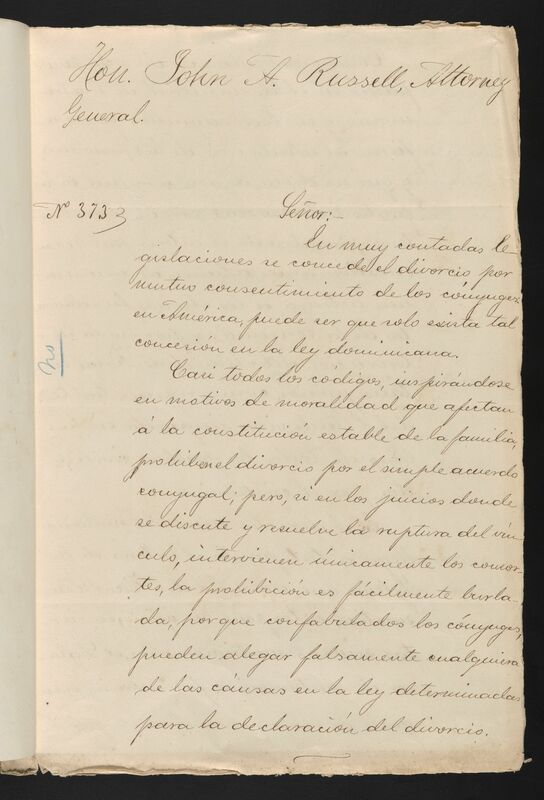 Hon. John A. Russell, Attorney
General.
Nº 3733
Señor:-
En muy contadas le-
gislaciones se concede el divorcio por
mutuo consentimiento de los cónyuges;
en América, puede ser que solo exista tal
concesión en la ley dominicana.
Casi todos los códigos, inspirándose
en motivos de moralidad que afectan
á la constitución estable de la familia,
prohiben el divorcio por el simple acuerdo
conyugal; pero, si en los juicios donde
se discute y resuelve la ruptura del vín-
culo, intervienen únicamente los consor-
tes, la prohibición es fácilmente burla-
da, porque confabulados los cónyuges,
pueden alegar falsamente cualquiera
de las cáusas en la ley determinadas
para la declaración del divorcio.